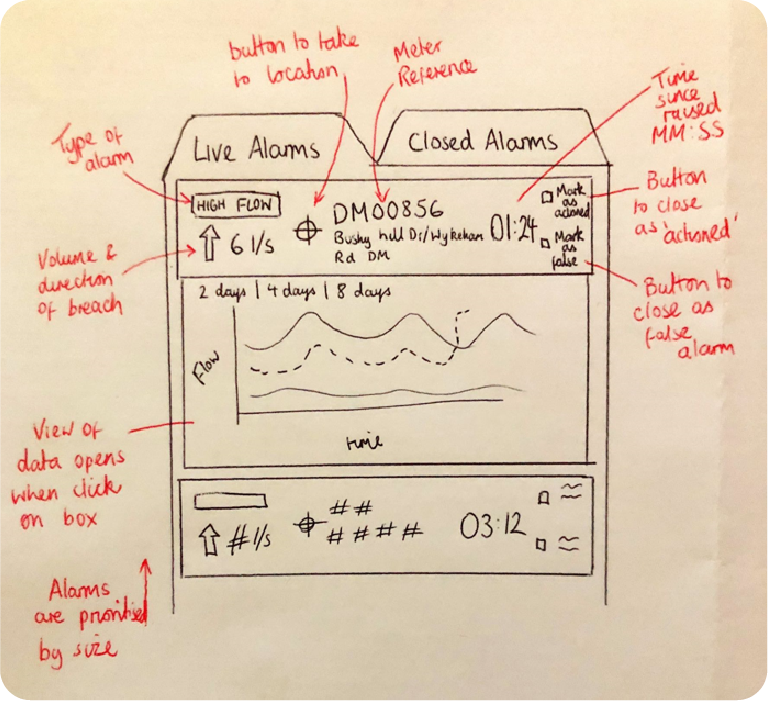 button to take
to location
Meter
Reference
Time
since
raised
MM:SS
Type of
alarm
Live Alarms
Closed Alarms
HIGH FLOW
6 l/s
DM00856
Bushy hill Dr/Wykeham
Rd DM
01:24
Mark
as
actioned
Mark
as
false
Button
to close
as 'actioned'
Volume &
direction
of breach
Button to
close as
false
alarm
2 days | 4 days | 8 days
Flow
time
View of
data opens
when click
on box
# l/s
# #
# # # #
03:12
Alarms
are prioritised
by size